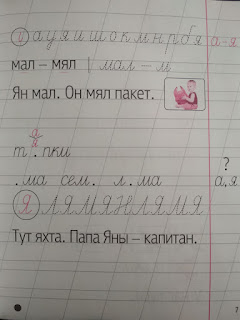 а у я и ш о к м н р б я а-я
мал – мял | мал – м
Ян мал. Он мял пакет.
а
я
т . пки
?
. ма сем. л . ма а, я
Я Л Я М Я Н Л Я М Я
Тут яхта. Папа Яны – капитан.
7